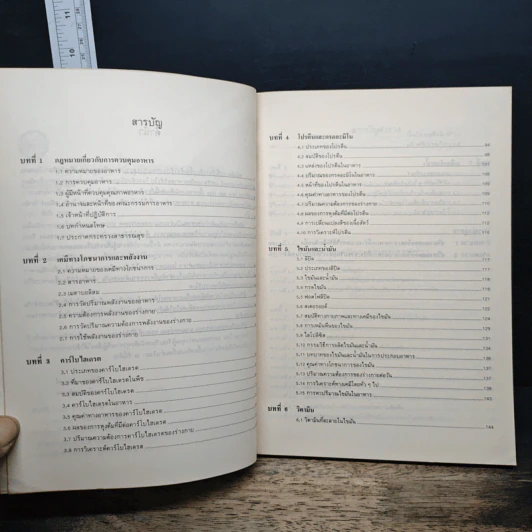 สารบัญ
บทที่ 1 กฎหมายเกี่ยวกับการควบคุมอาหาร
1.1 ความหมายของอาหาร
1.2 การควบคุมอาหาร
1.3 ผู้มีหน้าที่ควบคุมคุณภาพอาหาร
1.4 อำนาจและหน้าที่ของคณะกรรมการอาหาร
1.5 เจ้าหน้าที่ปฏิบัติการ
1.6 บทกำหนดโทษ
1.7 ประกาศกระทรวงสาธารณสุข
บทที่ 2 เคมีทางโภชนาการและพลังงาน
2.1 ความหมายของเคมีทางโภชนาการ
2.2 สารอาหาร
2.3 เมตาบอลิสม
2.4 การวัดปริมาณพลังงานของอาหาร
2.5 ความต้องการพลังงานของร่างกาย
2.6 การวัดปริมาณความต้องการพลังงานของร่างกาย
2.7 การใช้พลังงานของร่างกาย
บทที่ 3 คาร์โบไฮเดรต
3.1 ประเภทของคาร์โบไฮเดรต
3.2 ที่มาของคาร์โบไฮเดรตในพืช
3.3 สมบัติของคาร์โบไฮเดรต
3.4 คาร์โบไฮเดรตในอาหาร
3.5 คุณค่าทางอาหารของคาร์โบไฮเดรต
3.6 ผลของการหุงต้มที่มีต่อคาร์โบไฮเดรต
3.7 ปริมาณความต้องการคาร์โบไฮเดรตของร่างกาย
3.8 การวิเคราะห์คาร์โบไฮเดรต
บทที่ 4 โปรตีนและกรดอะมิโน
4.1 ประเภทของโปรตีน
4.2 สมบัติของโปรตีน
4.3 แหล่งของโปรตีนในอาหาร
4.4 ปริมาณของกรดอะมิโนในอาหาร
4.5 หน้าที่ของโปรตีนในอาหาร
4.6 คุณค่าทางอาหารของโปรตีน
4.7 ปริมาณความต้องการของร่างกาย
4.8 ผลของการหุงต้มที่มีต่อโปรตีน
4.9 การเปลี่ยนแปลงสีของเนื้อสัตว์
4.10 การวิเคราะห์โปรตีน
บทที่ 5 ไขมันและน้ำมัน
5.1 ลิปิด
5.2 ประเภทของลิปิด
5.3 ไขมันและน้ำมัน
5.4 กรดไขมัน
5.5 ฟอสโฟลิปิด
5.6 สเตอรอลส์
5.7 สมบัติทางกายภาพและทางเคมีของไขมัน
5.8 การเหม็นหืนของไขมัน
5.9 ไลโปลิซิส
5.10 กรรมวิธีการผลิตไขมันและน้ำมัน
5.11 บทบาทของไขมันและน้ำมันในการประกอบอาหาร
5.12 คุณค่าทางโภชนาการของไขมัน
5.13 ปริมาณความต้องการของร่างกายต่อวัน
5.14 การวิเคราะห์ทางเคมีโดยทั่ว ๆ ไป
5.15 การหาปริมาณไขมันในอาหาร
บทที่ 6 วิตามิน
6.1 วิตามินที่ละลายในไขมัน 144